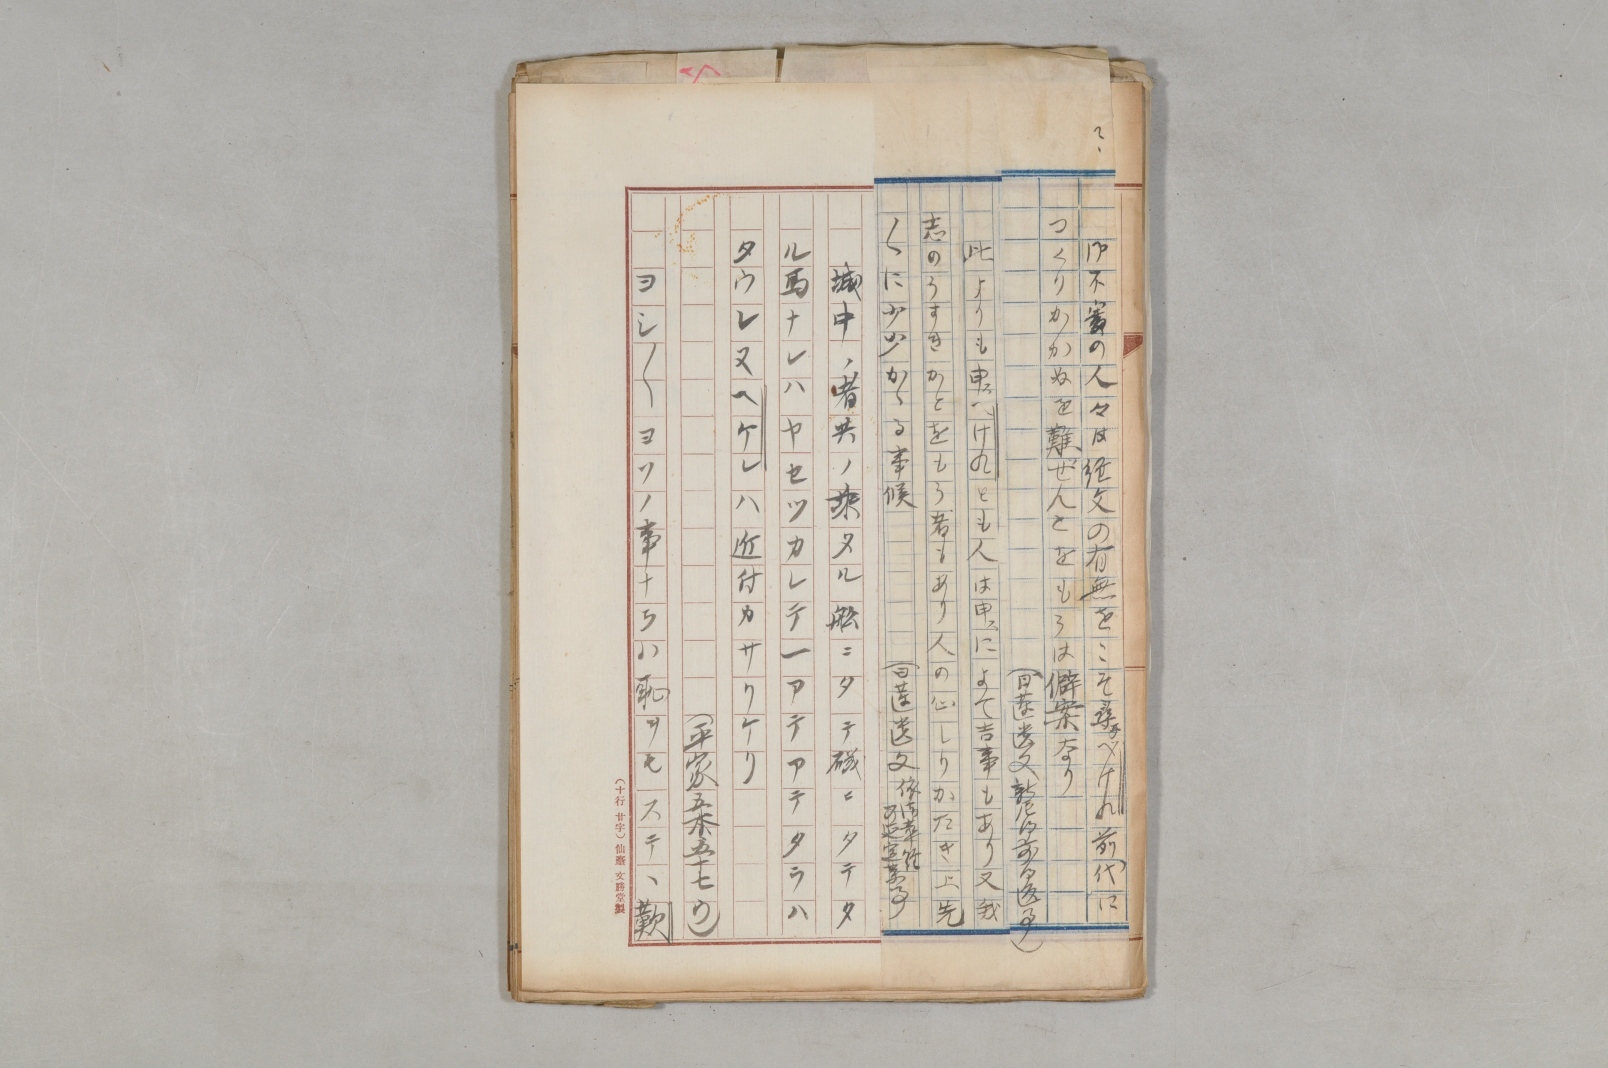 御不審の人々は経文の有無をこそ尋べけれ前代に
つくりかかぬを難ぜんとをもうは僻案なり
(日蓮遺文 新尼御前御返事)
此よりも申べけれとも人は申によて吉事もあり又我
志のうすきかとをもう者もあり人の心しりかたき上先
〳〵に少々かゝる事候
(日蓮遺文
城中ノ者共ノ乗タル船ニタテ磯ニタテタ
ル馬ナレハヤセツカレテ一アテアテタラハ
タウレヌヘケレハ近付カサリケリ
(平家五本五十七ウ)
ヨシ〳〵ヨソノ事ナラハ恥ヲモステヽ歎
(十行 廿字) 仙臺 文勝堂製